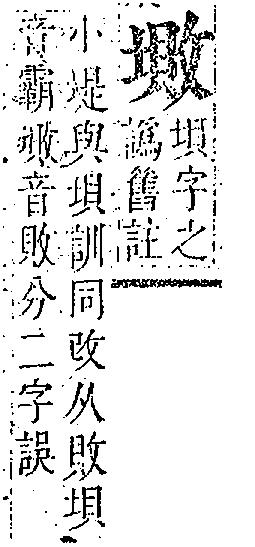 垻字之
譌舊註
小堤與垻訓同改从敗垻
音霸音敗分二字誤